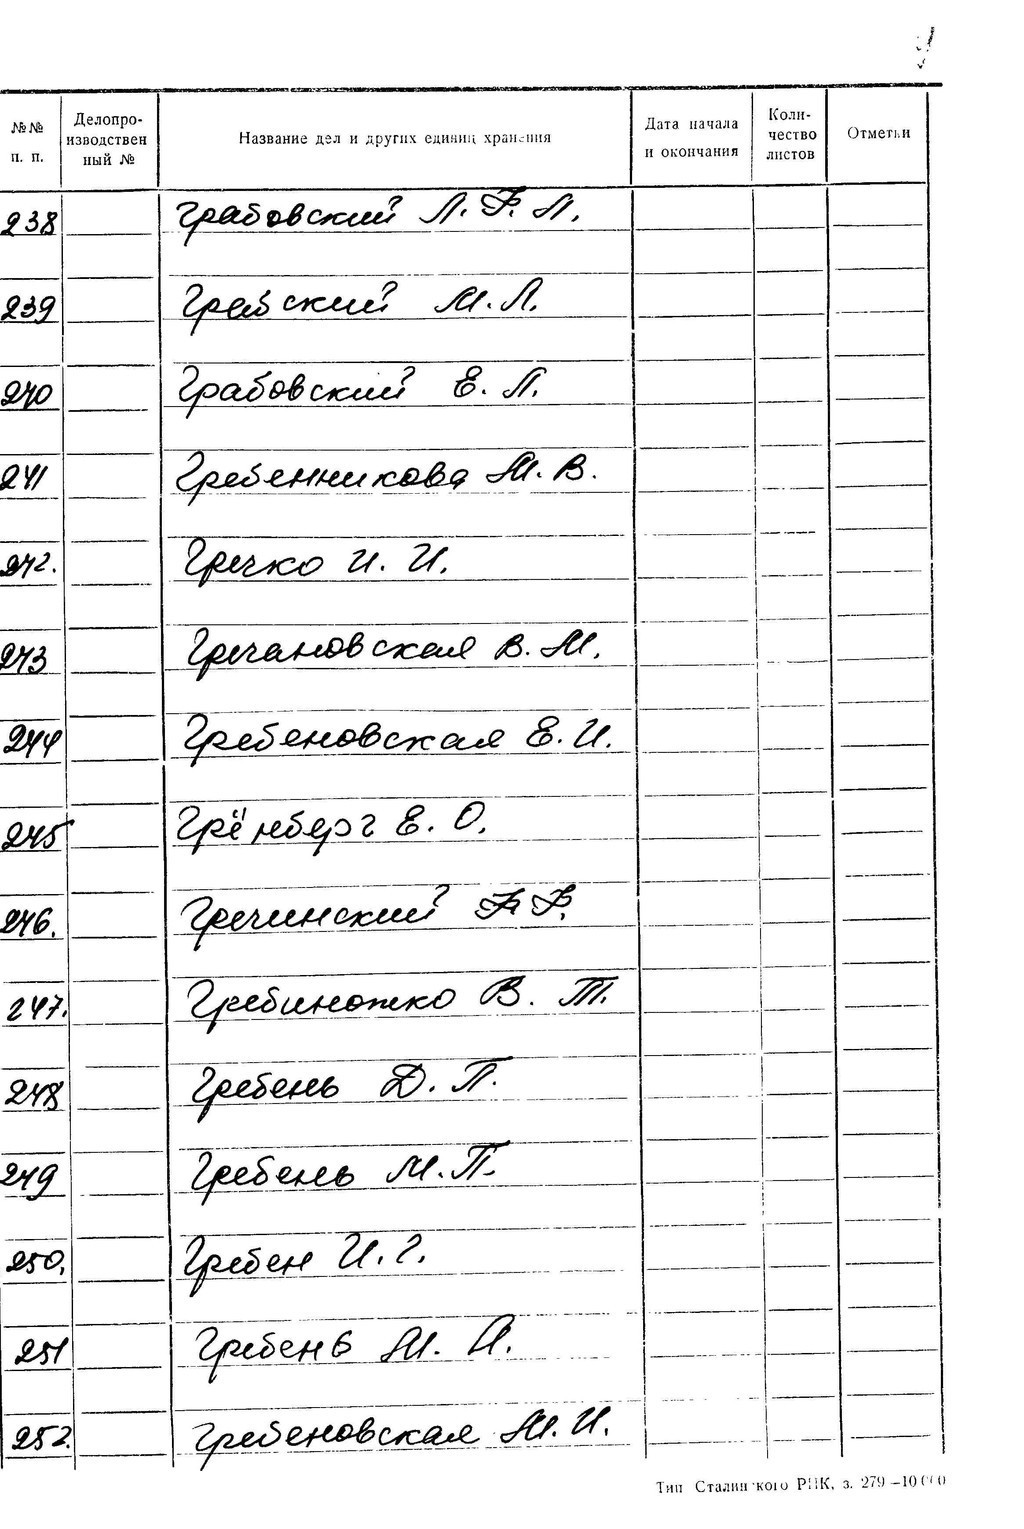 №№ п. п. Делопро-изводствен ный № Название дел и других единиц хранения Дата начала и окончания Коли-чество листов Отметки
238 Грабовский Л. Ф. Л.
239 Грабский М. Л.
240 Грабовский Е. Л.
241 Гребенникова М. В.
242. Гречко И. И.
243 Гречановская В. М.
244 Гребеновская Е. И.
245 Грёнберг Е. О.
246. Гречинский Ф. Ф.
247. Гребиножко В. Т.
248 Гребень Д. П.
249 Гребень М. П.
250. Гребен И. Г.
251 Гребень М. А.
252. Гребеновская М. И.
Тип Сталинского РПК, з. 279—10000